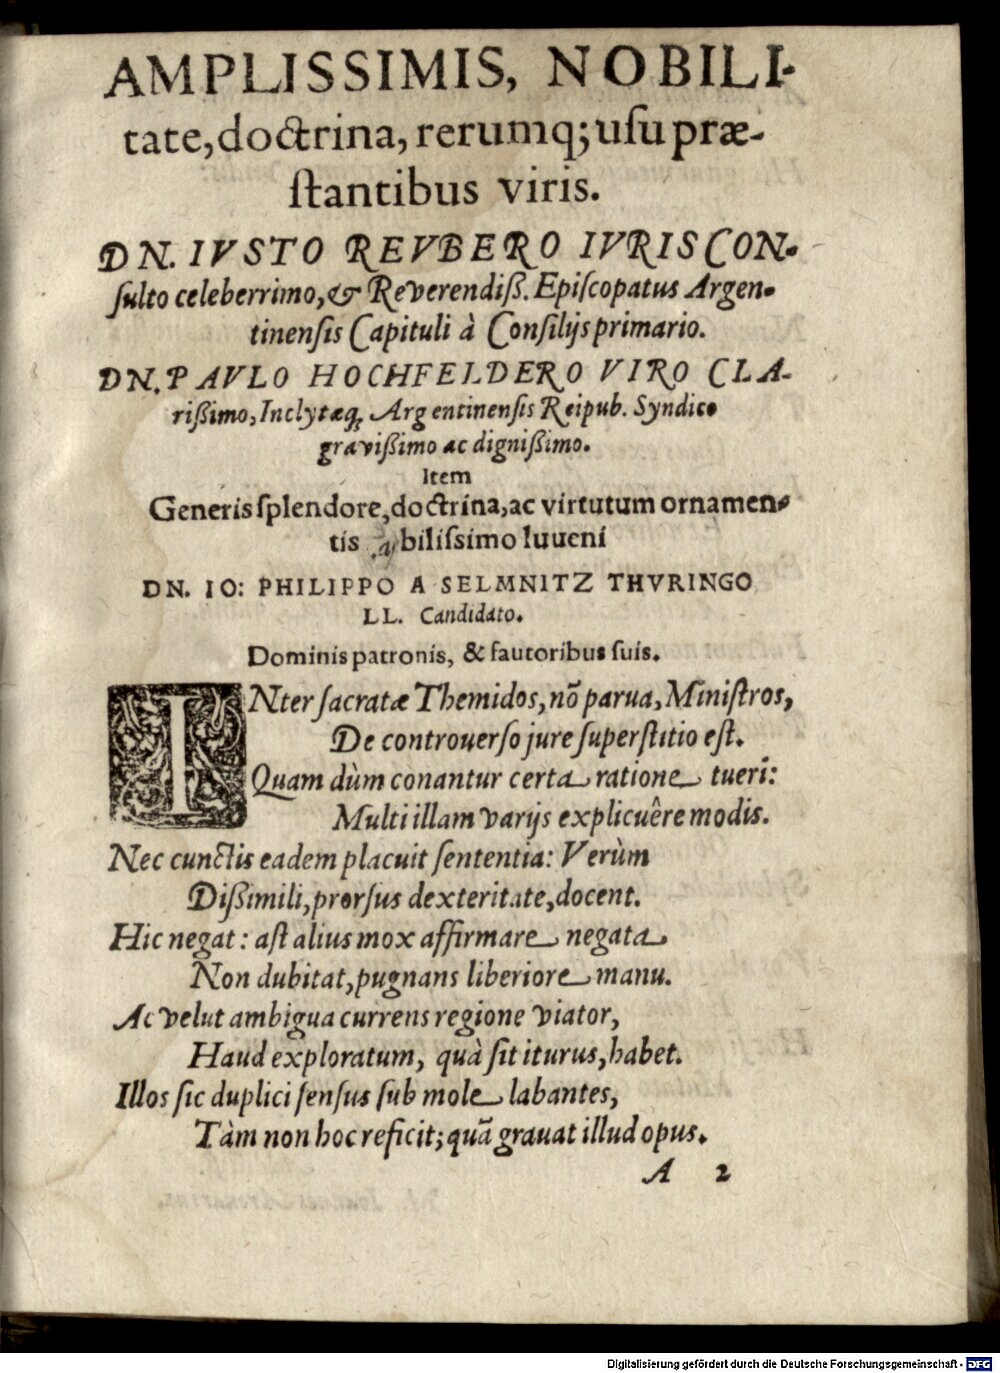 AMPLISSIMIS, NOBILI-
tate, doctrina, rerumq; uſu præ-
ſtantibus viris.
DN. IVSTO REVBERO IVRISCON-
ſulto celeberrimo, & Reverendiß. Epiſcopatus Argen-
tinenſis Capituli à Conſilijs primario.
DN. PAVLO HOCHFELDERO VIRO CLA-
rißimo, Inclytæq́; Argentinenſis Reipub. Syndico
gravißimo ac dignißimo.
Item
Generis ſplendore, doctrina, ac virtutum ornamen-
tis biliſsimo Iuueni
DN. IO: PHILIPPO A SELMNITZ THVRINGO
LL. Candidato.
Dominis patronis, & fautoribus ſuis.
INter ſacratæ Themidos, nõ parua, Miniſtros,
De controuerſo jure ſuperſtitio eſt.
Quam dùm conantur certa ratione tueri:
Multi illam varijs explicuêre modis.
Nec cunctis eadem placuit ſententia: Verùm
Dißimili, prorſus dexteritate, docent.
Hic negat: aſt alius mox affirmare negata
Non dubitat, pugnans liberiore manu.
Ac velut ambigua currens regione viator,
Haud exploratum, quà ſit iturus, habet.
Illos ſic duplici ſenſus ſub mole labantes,
Tàm non hoc reficit; quã grauat illud opus.
A 2
Digitalisierung gefördert durch die Deutsche Forschungsgemeinschaft - DFG